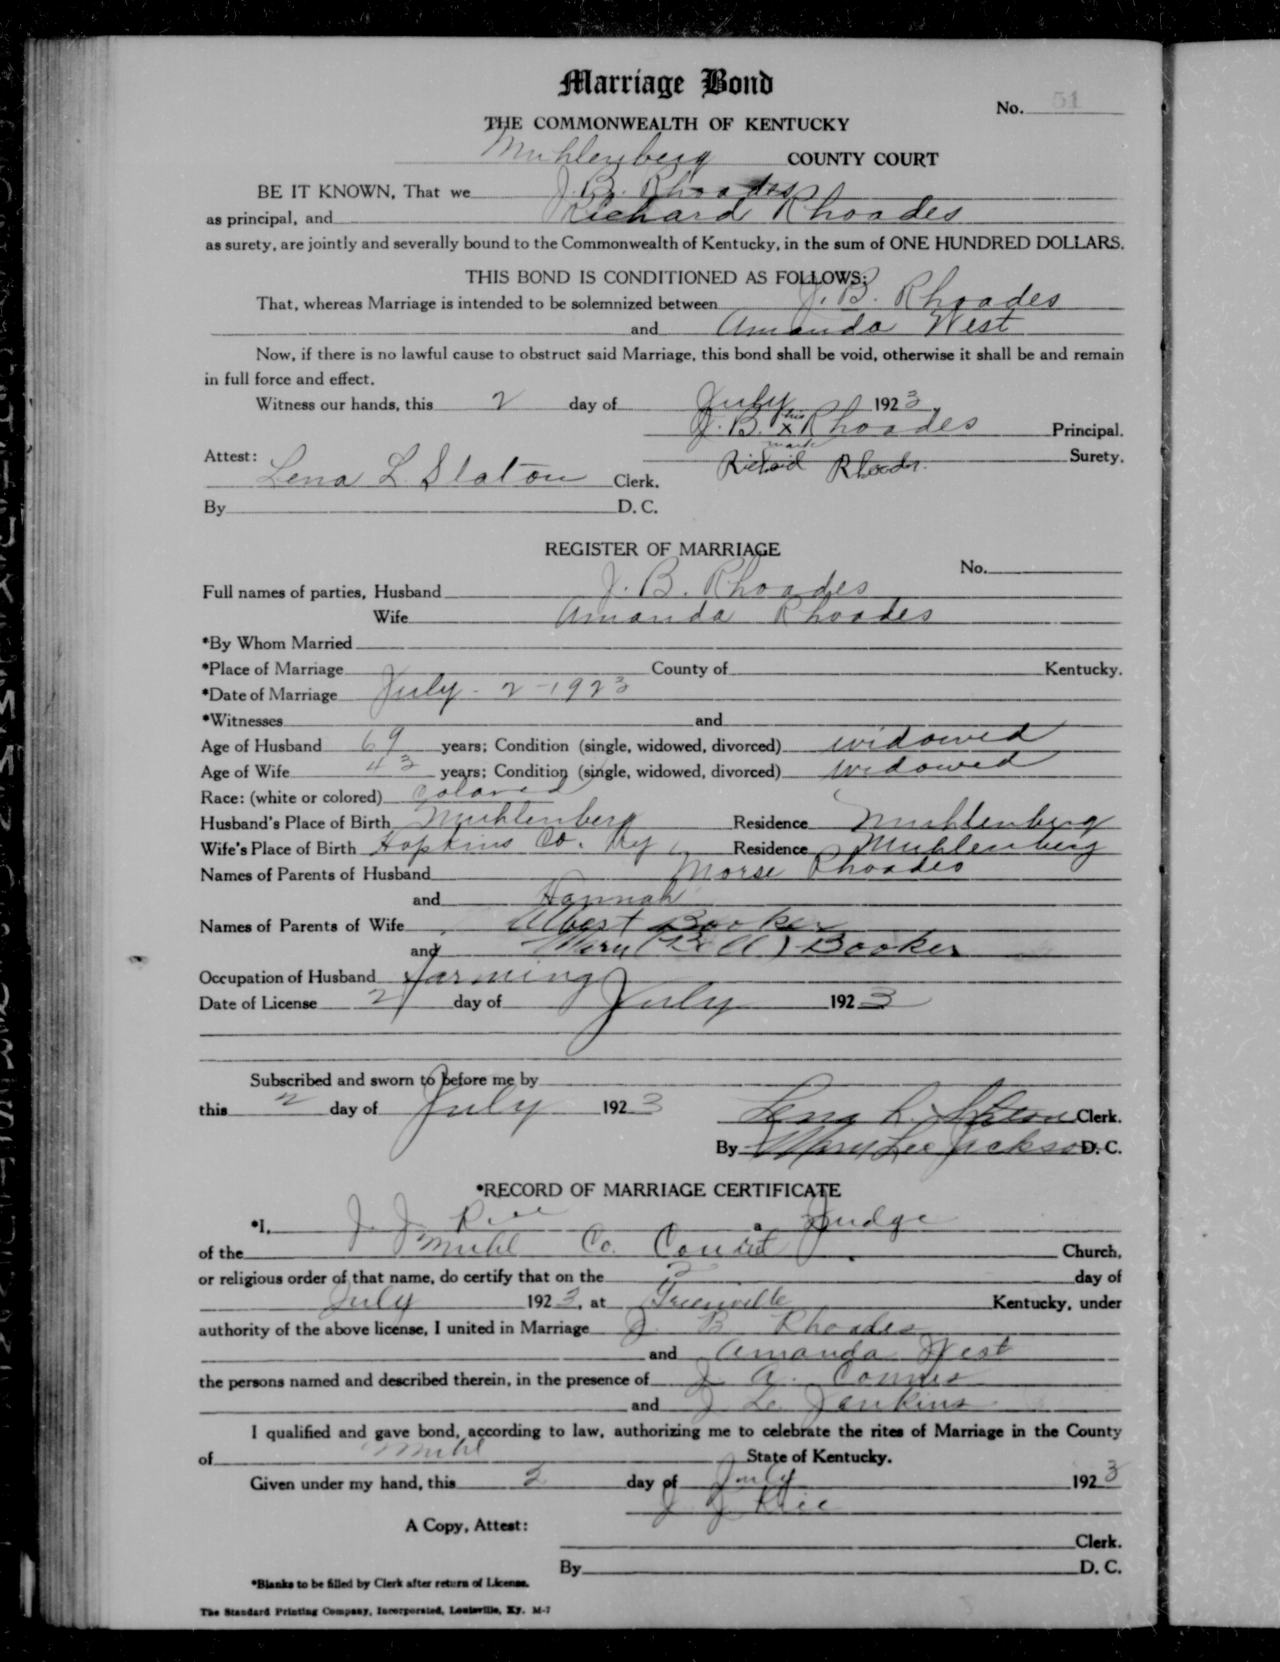 Marriage Bond
No. 51
THE COMMONWEALTH OF KENTUCKY
Muhlenberg COUNTY COURT
BE IT KNOWN, That we J. B. Rhoades
as principal, and Richard Rhoades
as surety, are jointly and severally bound to the Commonwealth of Kentucky, in the sum of ONE HUNDRED DOLLARS.
THIS BOND IS CONDITIONED AS FOLLOWS:
That, whereas Marriage is intended to be solemnized between J. B. Rhoades
and Amanda West
Now, if there is no lawful cause to obstruct said Marriage, this bond shall be void, otherwise it shall be and remain
in full force and effect.
Witness our hands, this 2 day of July 1923.
J. B. his x mark Rhoades Principal.
Attest: Richard Rhoades Surety.
Lena L. Slaton Clerk.
By D. C.
REGISTER OF MARRIAGE
No.
Full names of parties, Husband J. B. Rhoades
Wife Amanda Rhoades
*By Whom Married
*Place of Marriage County of Kentucky.
*Date of Marriage July - 2 - 1923
*Witnesses and
Age of Husband 69 years; Condition (single, widowed, divorced) widowed
Age of Wife 43 years; Condition (single, widowed, divorced) widowed
Race: (white or colored) Colored
Husband's Place of Birth Muhlenberg Residence Muhlenberg
Wife's Place of Birth Hopkins Co. Ky Residence Muhlenberg
Names of Parents of Husband Morse Rhoades
and Hannah
Names of Parents of Wife Albert Booker
and Mary Booker
Occupation of Husband farming
Date of License 2 day of July 1923
Subscribed and sworn to before me by
this 2 day of July 1923
Lena L. Slaton Clerk.
By Mary Lee Jackson D. C.
*RECORD OF MARRIAGE CERTIFICATE
*I, J. J. Rice a Judge
of the Muhl Co. Court Church,
or religious order of that name, do certify that on the 2 day of
July 1923, at Greenville Kentucky, under
authority of the above license, I united in Marriage J. B. Rhoades
and Amanda West
the persons named and described therein, in the presence of J. A.
and J Jenkins
I qualified and gave bond, according to law, authorizing me to celebrate the rites of Marriage in the County
of Muhl State of Kentucky.
Given under my hand, this 2 day of July 1923
J J Rice
A Copy, Attest:
Clerk.
By D. C.
*Blanks to be filled by Clerk after return of License.
The Standard Printing Company, Incorporated, Louisville, Ky. M-7